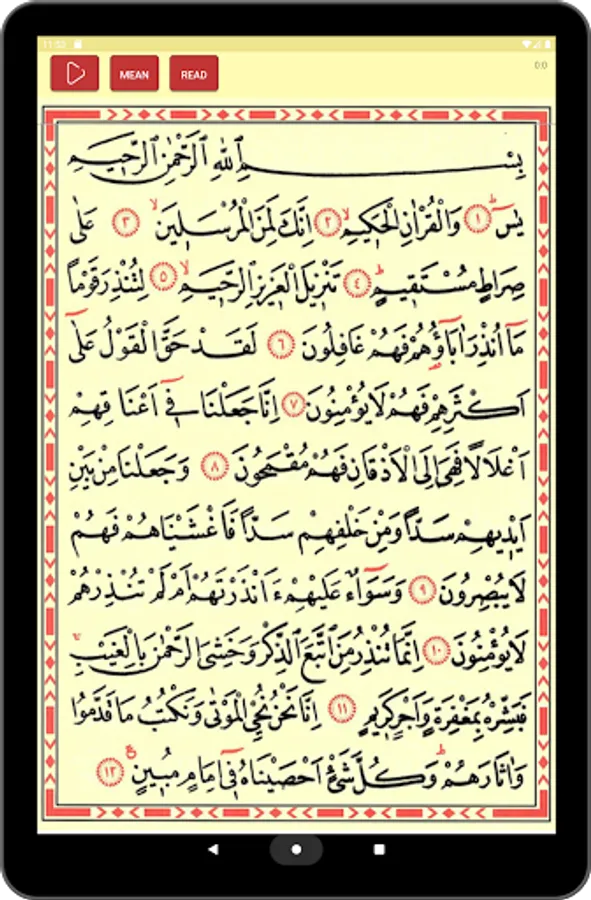 11:53
MEAN READ 0:0
بِسْمِ اللهِ الرَّحْمٰنِ الرَّحٖيمِ
يٰسٓ ﴿١﴾ وَالْقُرْاٰنِ الْحَكٖيمِ ﴿٢﴾ اِنَّكَ لَمِنَ الْمُرْسَلٖينَ ﴿٣﴾ عَلٰى
صِرَاطٍ مُسْتَقٖيمٍ ﴿٤﴾ تَنْزٖيلَ الْعَزٖيزِ الرَّحٖيمِ ﴿٥﴾ لِتُنْذِرَ قَوْمًا
مَٓا اُنْذِرَ اٰبَٓاؤُ۬هُمْ فَهُمْ غَافِلُونَ ﴿٦﴾ لَقَدْ حَقَّ الْقَوْلُ عَلٰٓى
اَكْثَرِهِمْ فَهُمْ لَا يُؤْمِنُونَ ﴿٧﴾ اِنَّا جَعَلْنَا فٖٓى اَعْنَاقِهِمْ
اَغْلَالًا فَهِىَ اِلَى الْاَذْقَانِ فَهُمْ مُقْمَحُونَ ﴿٨﴾ وَجَعَلْنَا مِنْ بَيْنِ
اَيْدٖيهِمْ سَدًّا وَمِنْ خَلْفِهِمْ سَدًّا فَاَغْشَيْنَاهُمْ فَهُمْ
لَا يُبْصِرُونَ ﴿٩﴾ وَسَوَٓاءٌ عَلَيْهِمْ ءَاَنْذَرْتَهُمْ اَمْ لَمْ تُنْذِرْهُمْ
لَا يُؤْمِنُونَ ﴿١٠﴾ اِنَّمَا تُنْذِرُ مَنِ اتَّبَعَ الذِّكْرَ وَخَشِىَ الرَّحْمٰنَ بِالْغَيْبِ
فَبَشِّرْهُ بِمَغْفِرَةٍ وَاَجْرٍ كَرٖيمٍ ﴿١١﴾ اِنَّا نَحْنُ نُحْيِى الْمَوْتٰى وَنَكْتُبُ مَا قَدَّمُوا
وَاٰثَارَهُمْ وَكُلَّ شَىْءٍ اَحْصَيْنَاهُ فٖٓى اِمَامٍ مُبٖينٍ ﴿١٢﴾